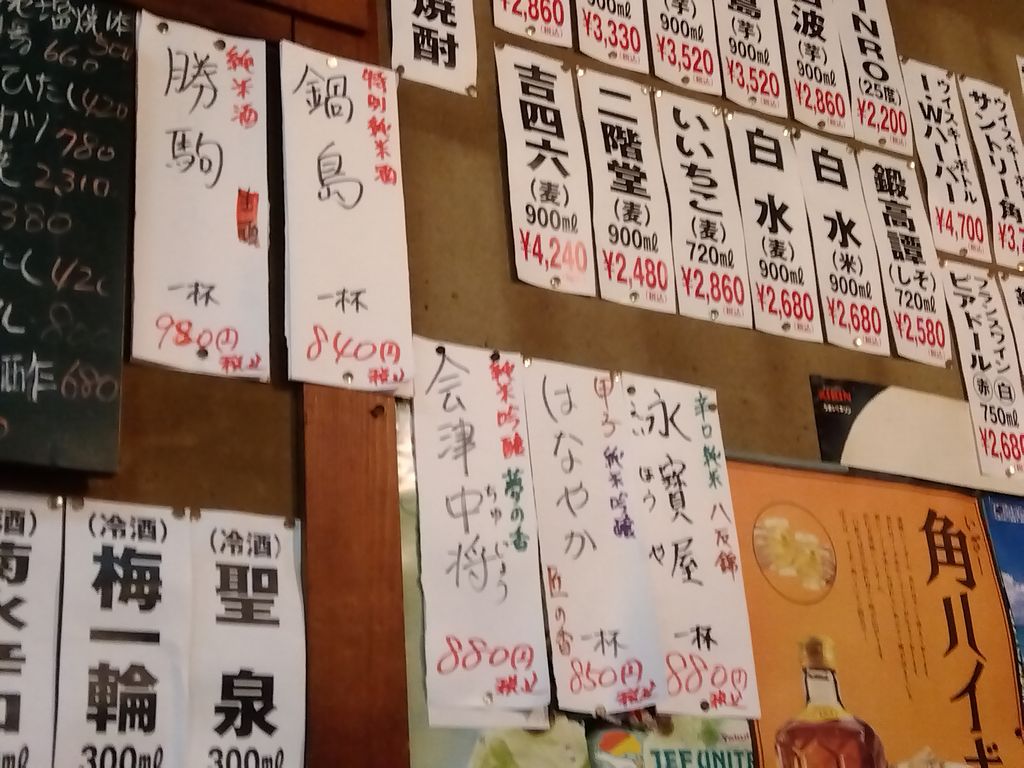 660
420
780
2,310
380
420
酢 680
勝駒
純米酒
一杯
980円
税込
鍋島
特別純米酒
一杯
840円
税込
焼酎
¥2,860
(税込)
900mℓ
¥3,330
(税込)
(芋)
900mℓ
¥3,520
(税込)
島
(芋)
900mℓ
¥3,520
(税込)
波
(芋)
900mℓ
¥2,860
(税込)
INRO
(25度)
¥2,200
(税込)
吉四六
(麦)
900mℓ
¥4,240
二階堂
(麦)
900mℓ
¥2,480
(税込)
いいちこ
(麦)
720mℓ
¥2,860
(税込)
白水
(麦)
900mℓ
¥2,680
(税込)
白水
(米)
900mℓ
¥2,680
(税込)
鍛高譚
(しそ)
720mℓ
¥2,580
(税込)
ウイスキーボトル
I.Wハーパー
¥4,700
(税込)
ウイスキーボトル
サントリー角
フランスワイン
ビアドール
赤 白
750mℓ
¥2,680
KIRIN
会津中将
ちゅうじょう
純米吟醸
夢の香
880円
税込
はなやか
甲子純米吟醸
匠の香
一杯
850円
税込
永寶屋
ほうや
辛口純米
八反錦
一杯
880円
税込
(冷酒)
梅一輪
300mℓ
(冷酒)
聖泉
300mℓ
角ハイボ
JEF UNITE